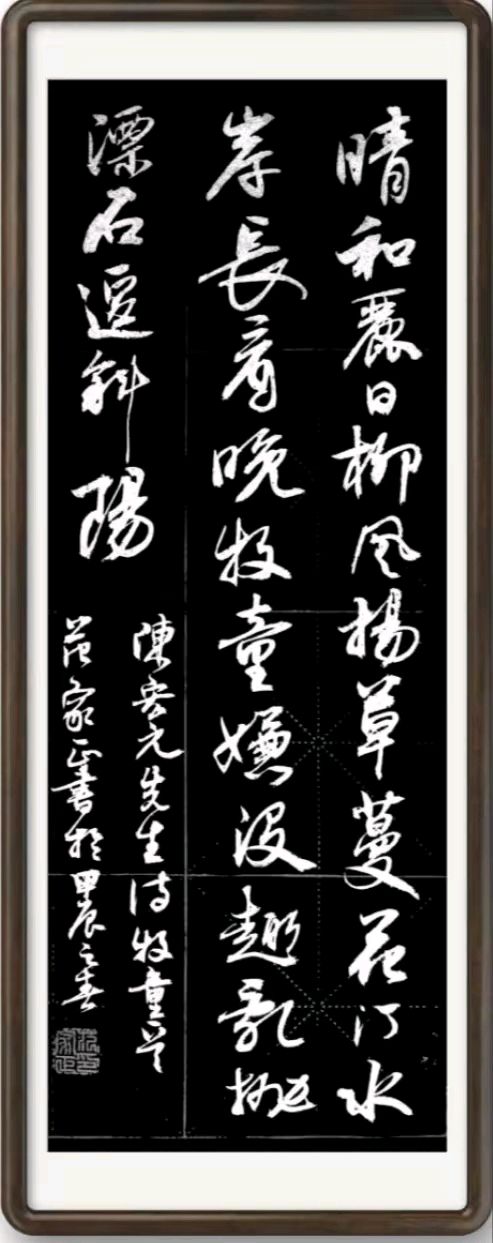 晴和麗日柳風揚草蔓花汀水
岸長晚牧童嫌没趣亂拋
漂石逗斜陽
陳宏元先生诗牧童
范家正書於甲辰之春